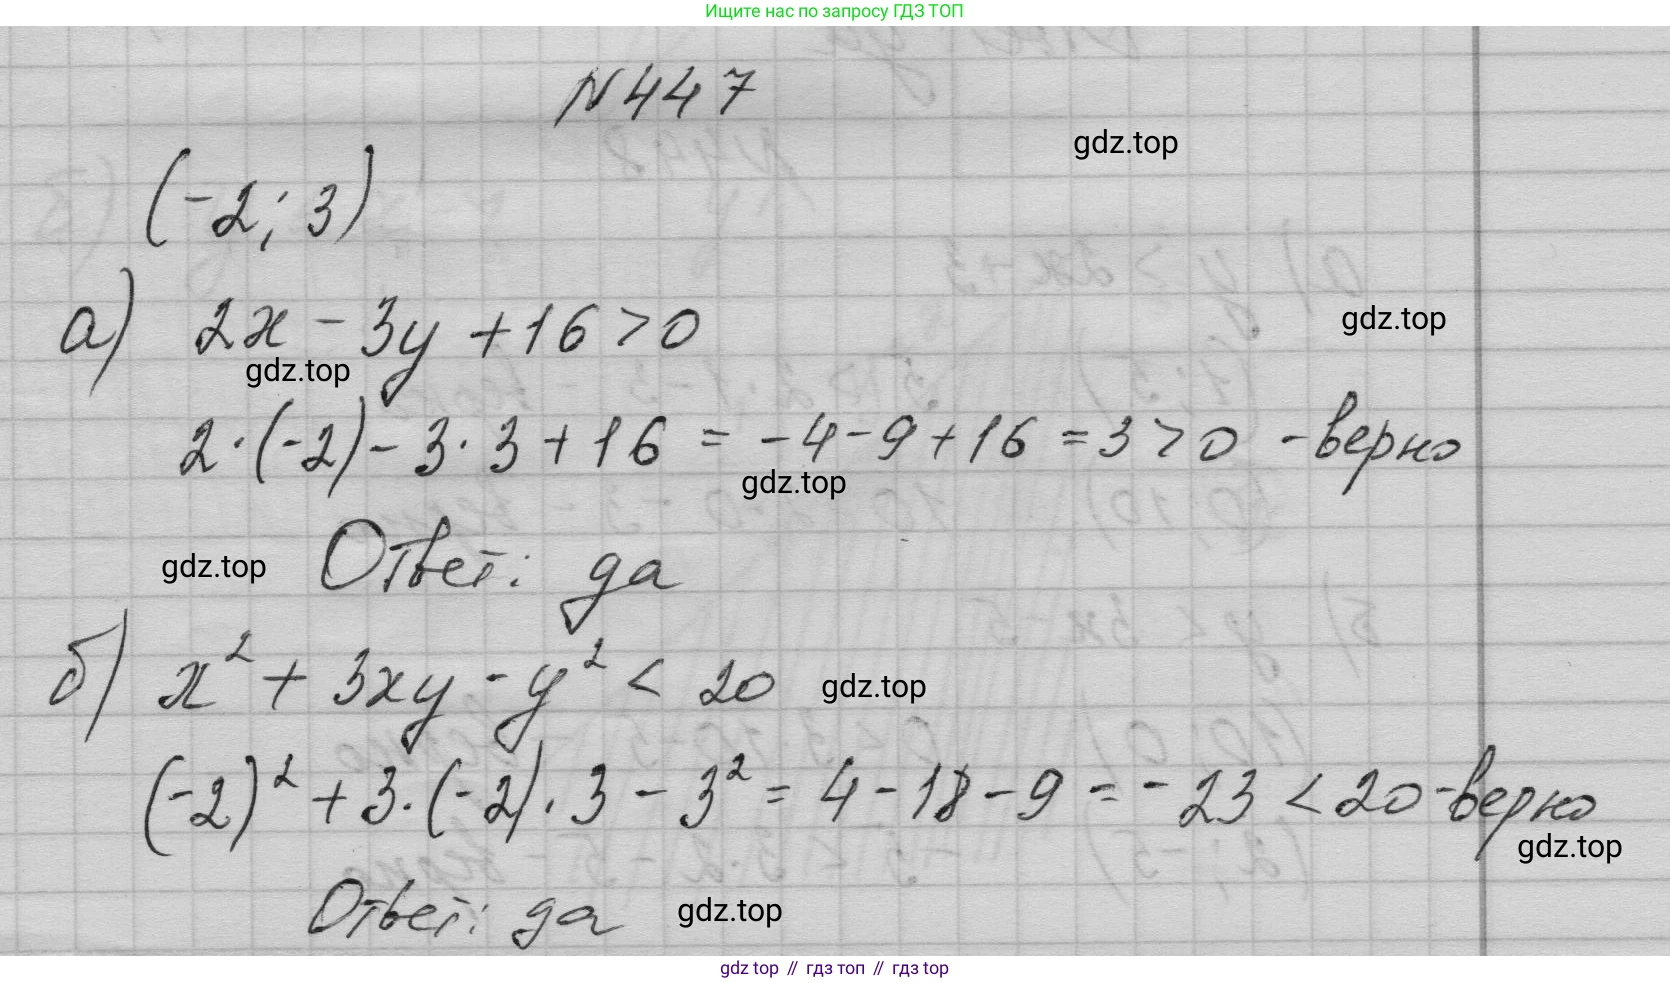 Ищите нас по запросу ГДЗ ТОП
N447
gdz.top
(-2; 3)
а) 2x - 3y + 16 > 0
gdz.top
gdz.top
2·(-2) - 3·3 + 16 = -4 - 9 + 16 = 3 > 0 - верно
gdz.top
gdz.top
Ответ: да
б) x² + 3xy - y² < 20
gdz.top
(-2)² + 3·(-2)·3 - 3² = 4 - 18 - 9 = -23 < 20 - верно
gdz.top
Ответ: да
gdz.top
gdz top // гдз топ // гдз top